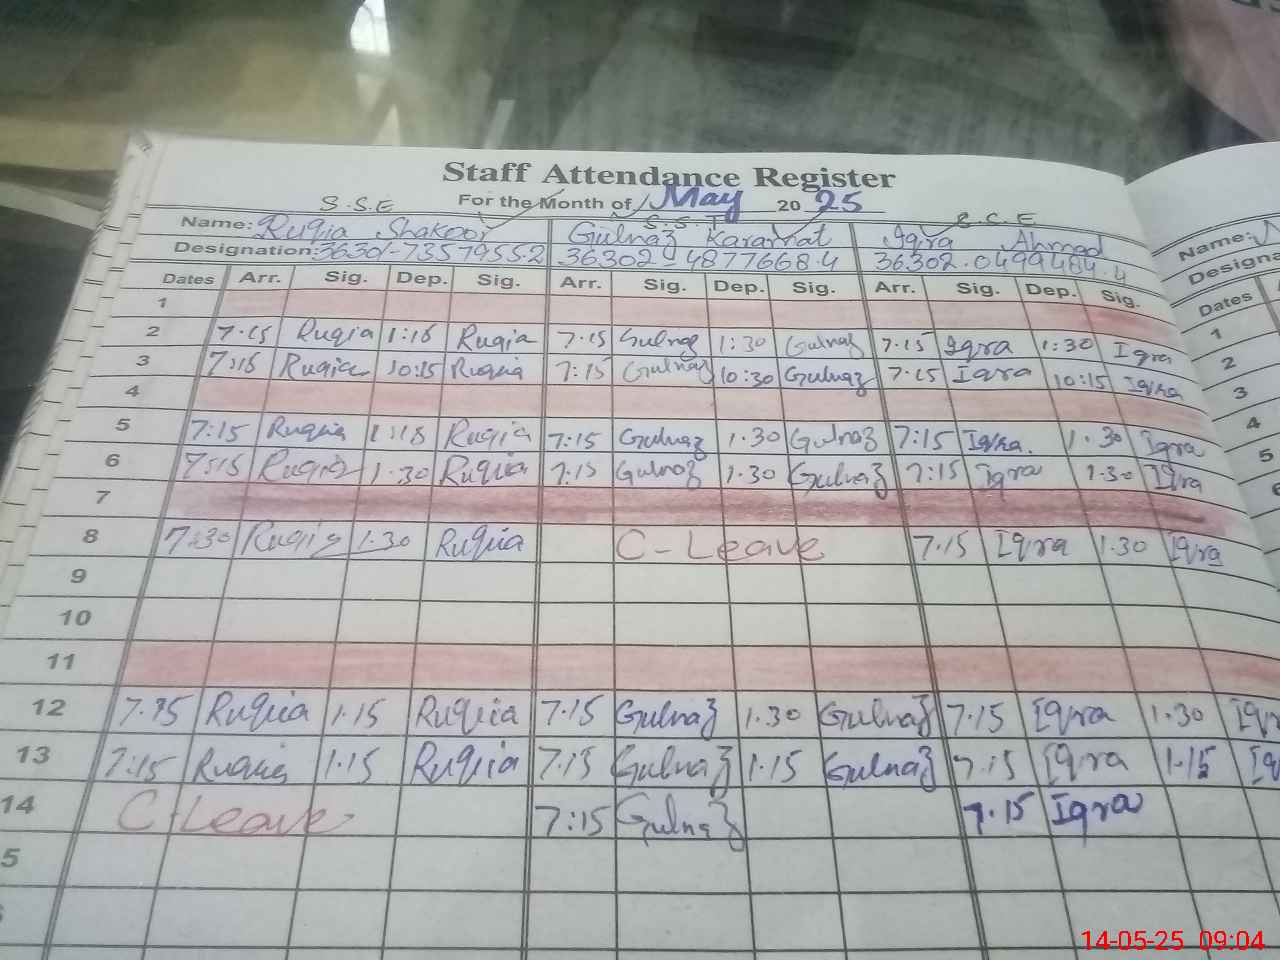 Staff Attendance Register
S.S.E For the Month of May 20 25
S.S.T E.C.E
Name: Ruqia Shakoor Gulnaz Karamat Iqra Ahmad Name:
Designation: 36301-7357955.2 36302-4877668.4 36302.0499484.4
Dates Arr. Sig. Dep. Sig. Arr. Sig. Dep. Sig. Arr. Sig. Dep. Sig. Dates
1 1
2 7.15 Ruqia 1:15 Ruqia 7.15 Gulnaz 1:30 Gulnaz 7.15 Iqra 1:30 Iqra 2
3 7:15 Ruqia 10:15 Ruqia 7:15 Gulnaz 10:30 Gulnaz 7.15 Iqra 10:15 Iqra 3
4 4
5 7:15 Ruqia 1:15 Ruqia 7:15 Gulnaz 1.30 Gulnaz 7:15 Iqra. 1.30 Iqra 5
6 7:15 Ruqia 1.30 Ruquia 7.15 Gulnaz 1.30 Gulnaz 7:15 Iqra 1.30 Iqra
7
8 7:30 Ruqia 1.30 Ruquia C-Leave 7.15 Iqra 1.30 Iqra
9
10
11
12 Ruquia 1.15 Ruquia 7.15 Gulnaz 1.30 Gulnaz 7.15 Iqra 1.30
13 7:15 Ruquia 1.15 Ruquia 7.15 Gulnaz 1.15 Gulnaz 7.15 Iqra 1.15
14 C-Leave 7:15 Gulnaz 7.15 Iqra
5
14-05-25 09:04